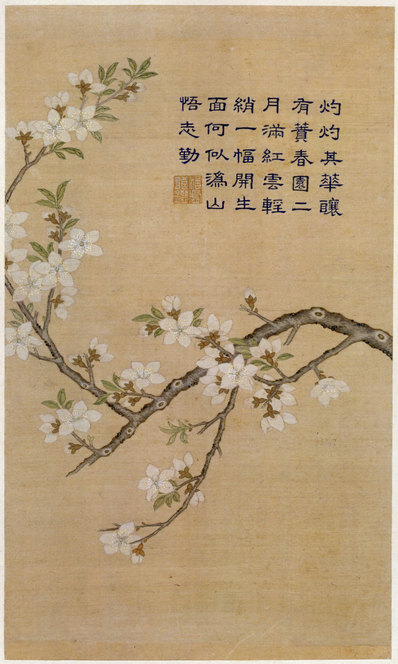 灼灼其華釀
有蕡春園二
月滿紅雲輕
綃一幅開生
面何似溈山
悟志勤